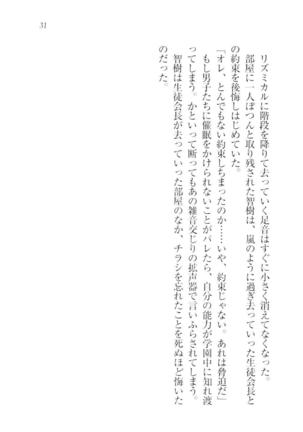 31
リズミカルに階段を降りて去っていく足音はすぐに小さく消えてなくなった。
部屋に一人ぽつんと取り残された智樹は、嵐のように過ぎ去っていった生徒会長と
の約束を後悔しはじめていた。
「オレ、とんでもない約束しちまったのか……いや、約束じゃない。あれは脅迫だ」
もし男子たちに催眠をかけられないことがバレたら、自分の能力が学園中に知れ渡
ってしまう。かといって断ってもあの雑音交じりの拡声器で言いふらされてしまう。
智樹は生徒会長が去っていった部屋のなか、チラシを忘れたことを死ぬほど悔いた
のだった。